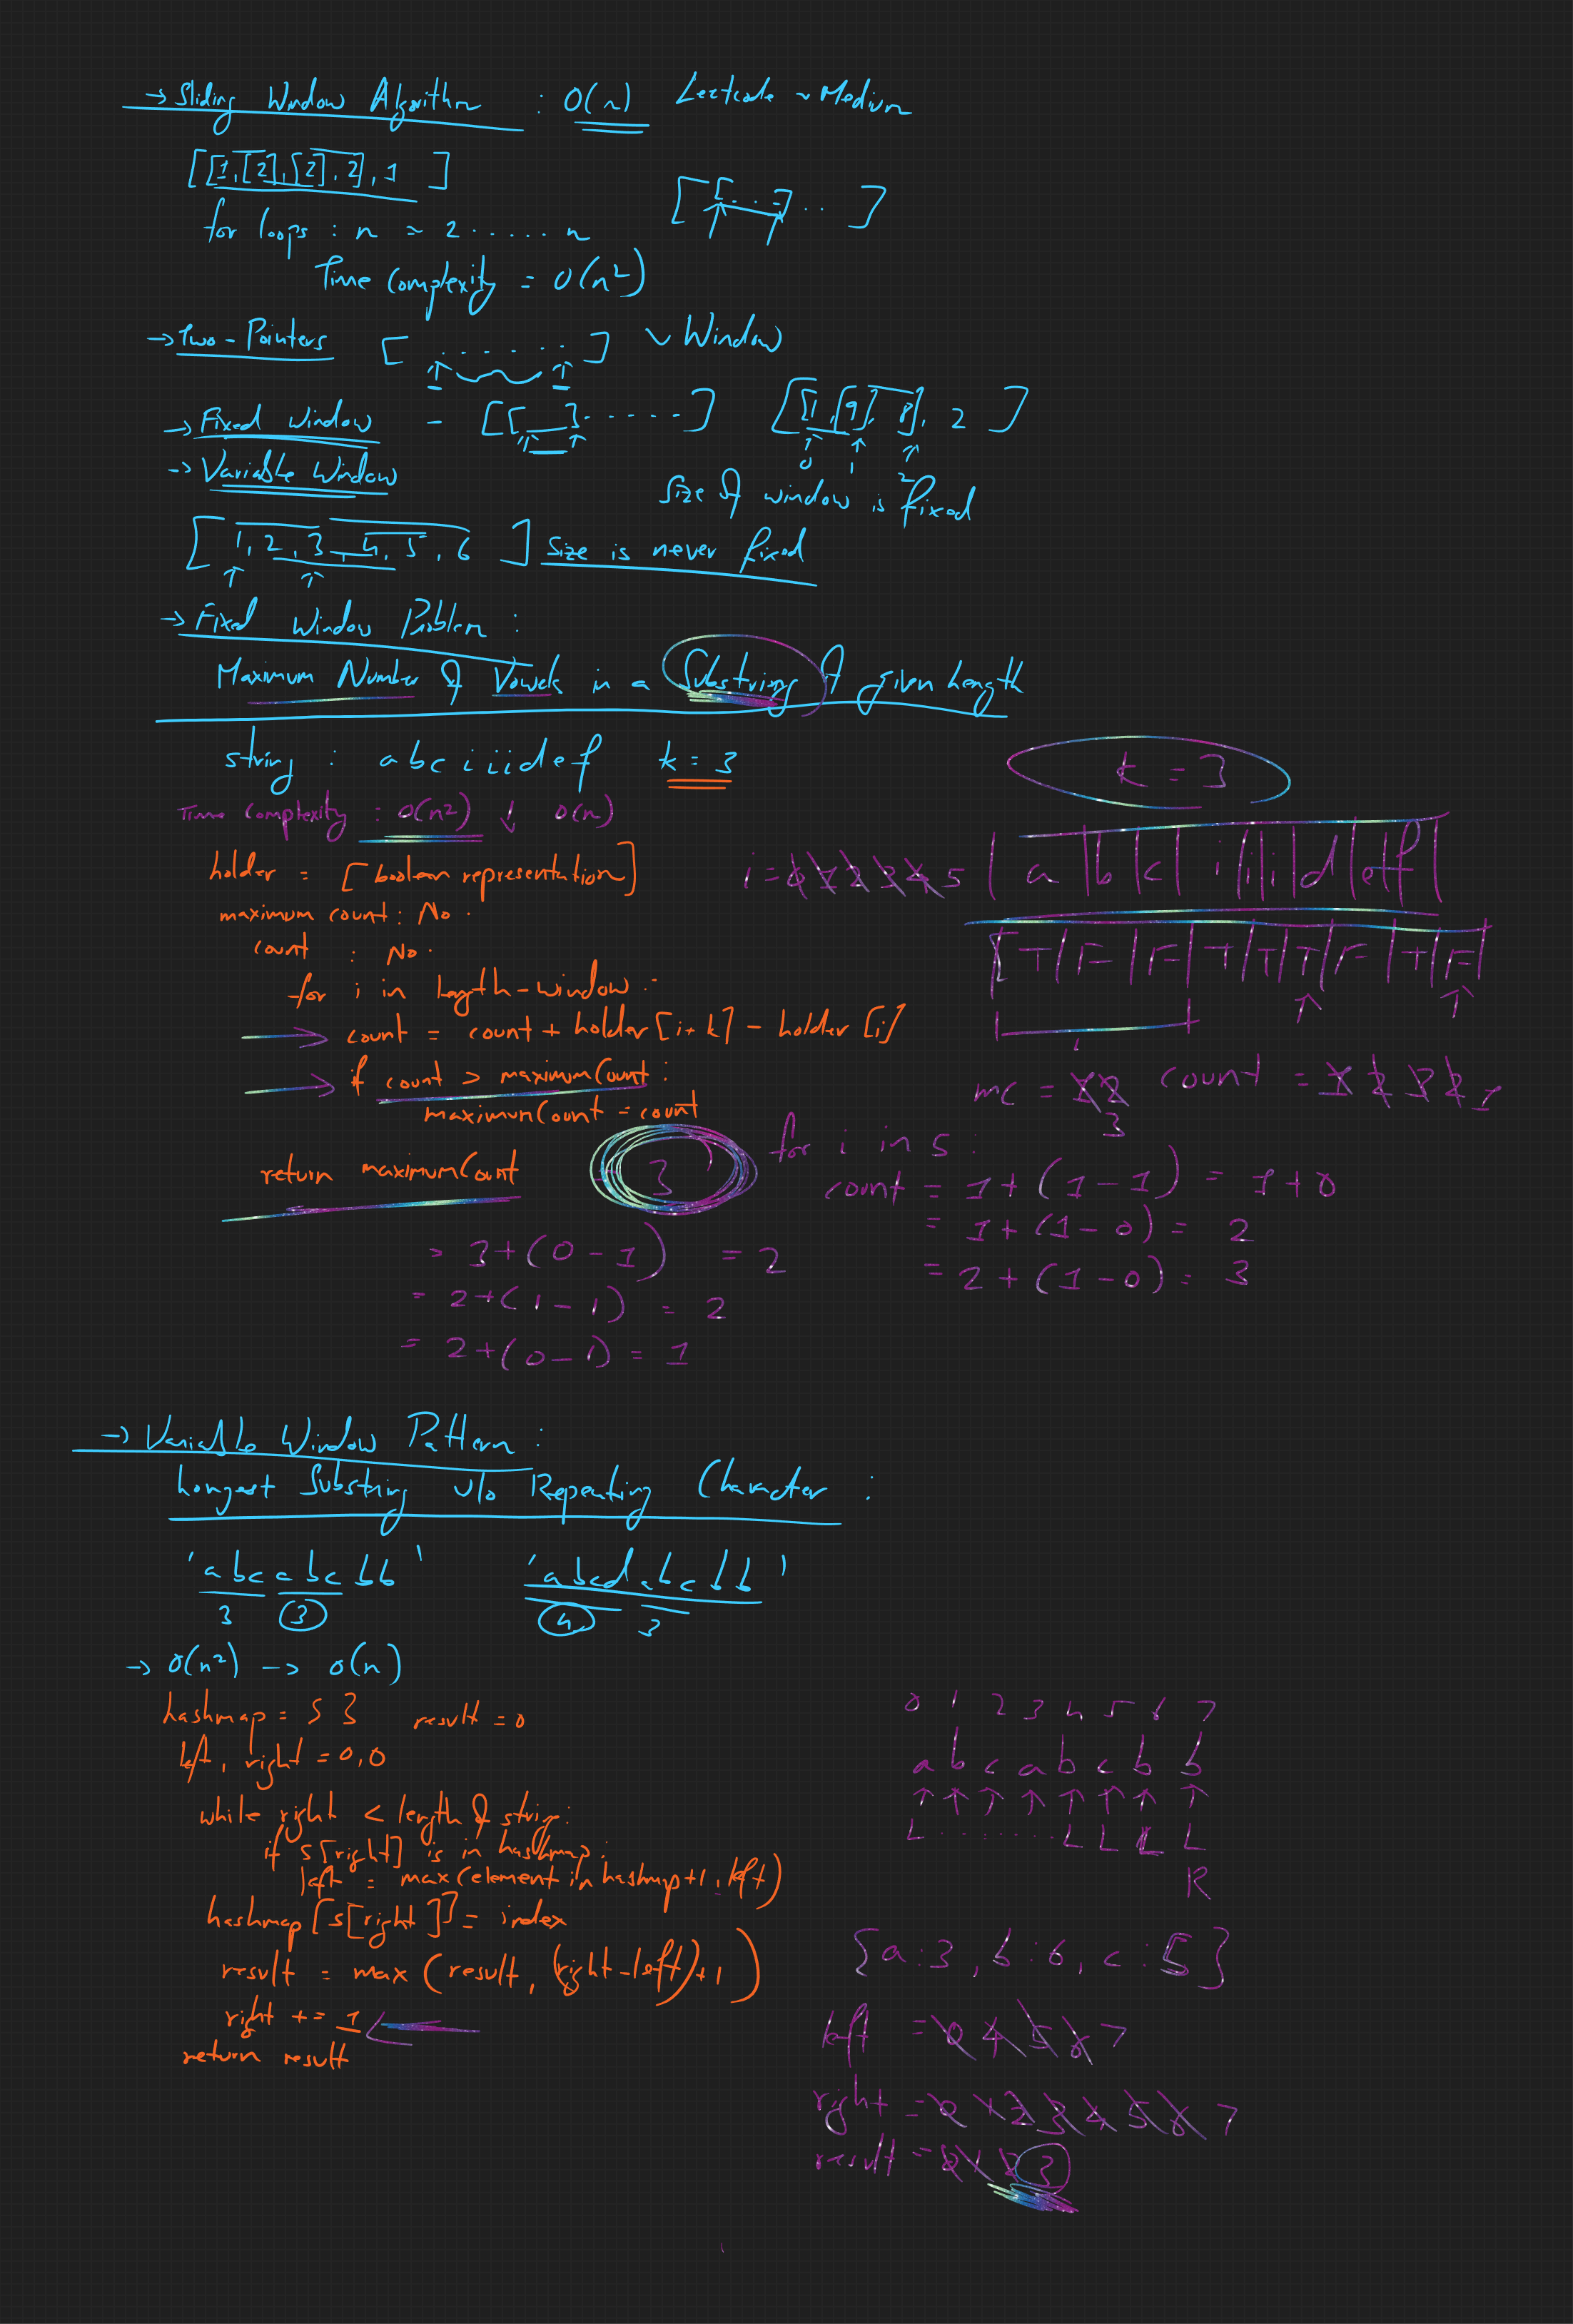 → Sliding Window Algorithm : O(n) Leetcode ~ Medium
[[1,[2],[2],2],1 ]
[ [...]·· ]
for loops : n ~ 2 ..... n
Time Complexity = O(n²)
→ Two-Pointers [ ....... ] ~ Window
→ Fixed Window - [[__]......] [[1,[9],8],2 ]
0 1 2
→ Variable Window
Size of window is fixed
[ 1,2,3,4,5,6 ] size is never fixed
→ Fixed Window Problem :
Maximum Number of Vowels in a Substring of given Length
string : abciiidef k = 3
k = 3
Time Complexity : O(n²) ↓ O(n)
holder = [boolean representation]
i = 0 1 2 3 4 5 | a | b | c | i | i | i | d | e | f |
maximum count : No.
count : No.
[ T | F | F | T | T | T | F | T | F |
for i in length-window :
count = count + holder[i+k] - holder[i]
if count > maximumCount :
maximumCount = count
mc = 1 2 3 count = 1 2 3 2 1
return maximumCount 3
for i in 5 :
count = 1 + (1-1) = 1+0
= 1 + (1-0) = 2
= 2 + (1-0) = 3
= 3+(0-1) = 2
= 2+(1-1) = 2
= 2+(0-1) = 1
→ Variable Window Pattern :
Longest Substring w/o Repeating Character :
'abcabcbb' 'abcdabcbb'
3 3 4 3
→ O(n²) → O(n)
hashmap = { } result = 0
left, right = 0,0
while right < length of string:
if s[right] is in hashmap:
left = max(element in hashmap+1, left)
hashmap[s[right]] = index
result = max(result, (right-left)+1)
right += 1
return result
0 1 2 3 4 5 6 7
a b c a b c b b
↑ ↑ ↑ ↑ ↑ ↑ ↑ ↑
L ....... L L L L
R
{a:3, b:6, c:5}
left = 0 4 5 6 7
right = 0 1 2 3 4 5 6 7
result = 0 1 2 3